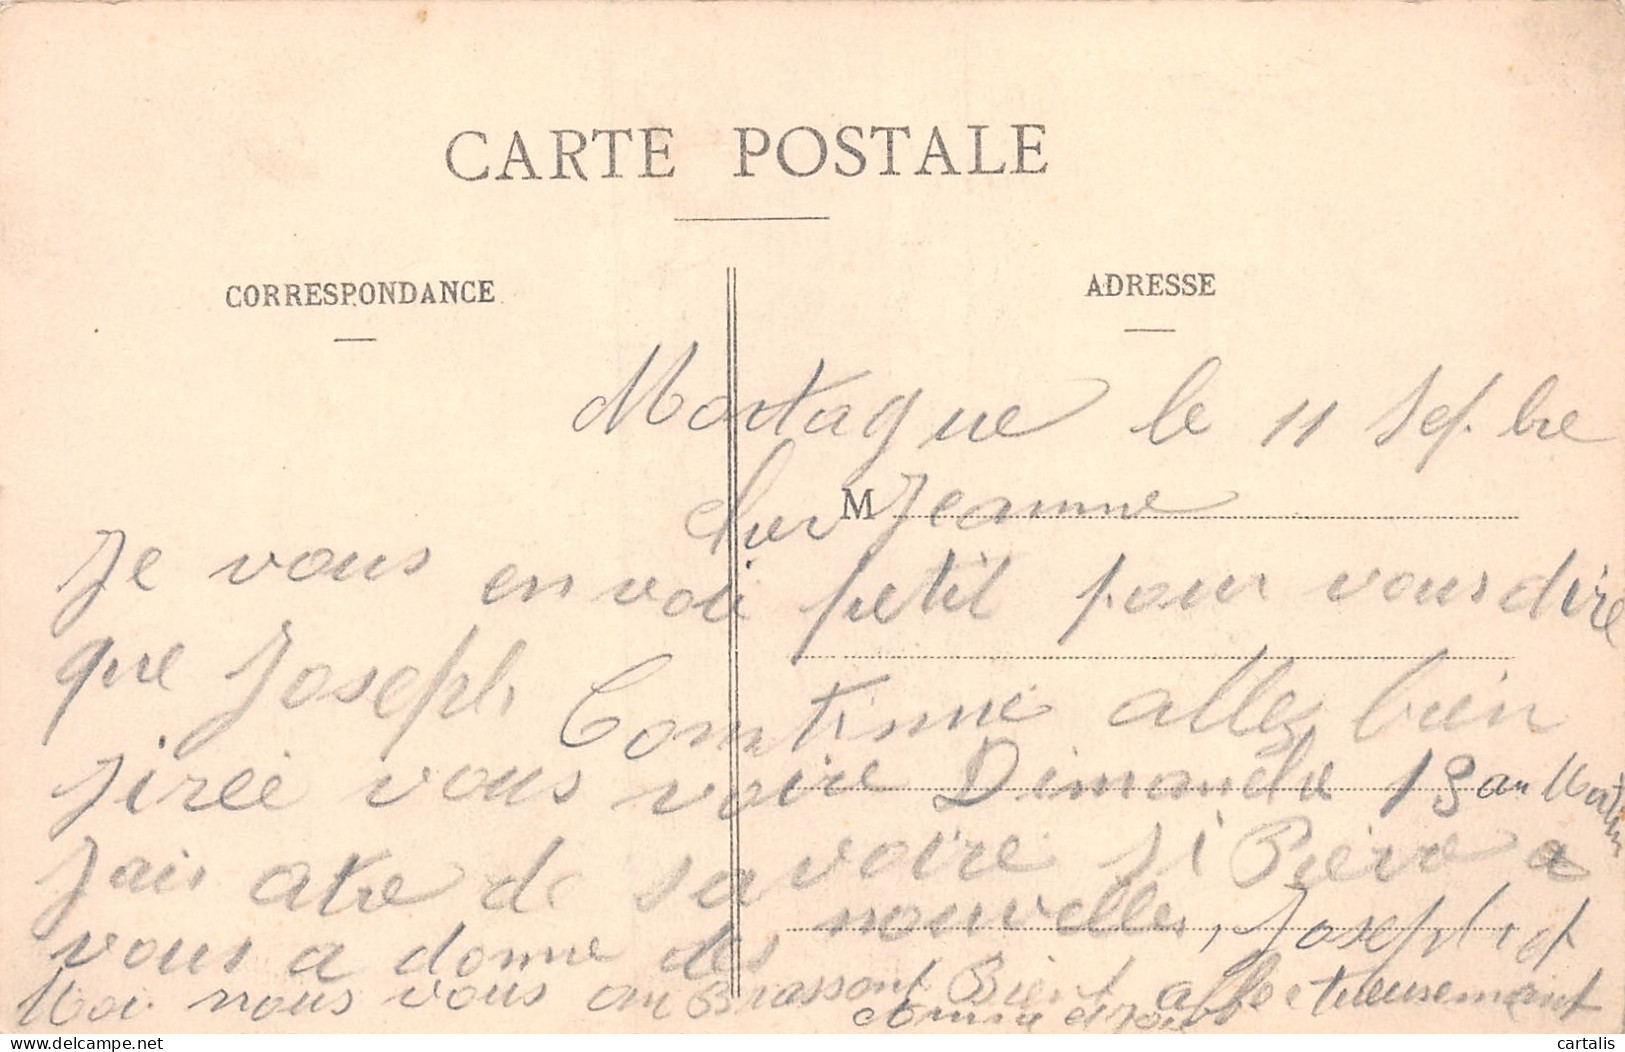 CARTE POSTALE
CORRESPONDANCE
ADRESSE
Mortagne le 11 Sepbre
Cher Jeanne
M
Je vous envoi petit pour vous dire
que Joseph Comtinue allez bien
jirée vous voire Dimanche 19 au Matin
Jais ate de sa voire si Pierre a
vous a donne des nouvelles, Joseph et
Moi nous vous anBrassont Bient affectueusemant
cartalis